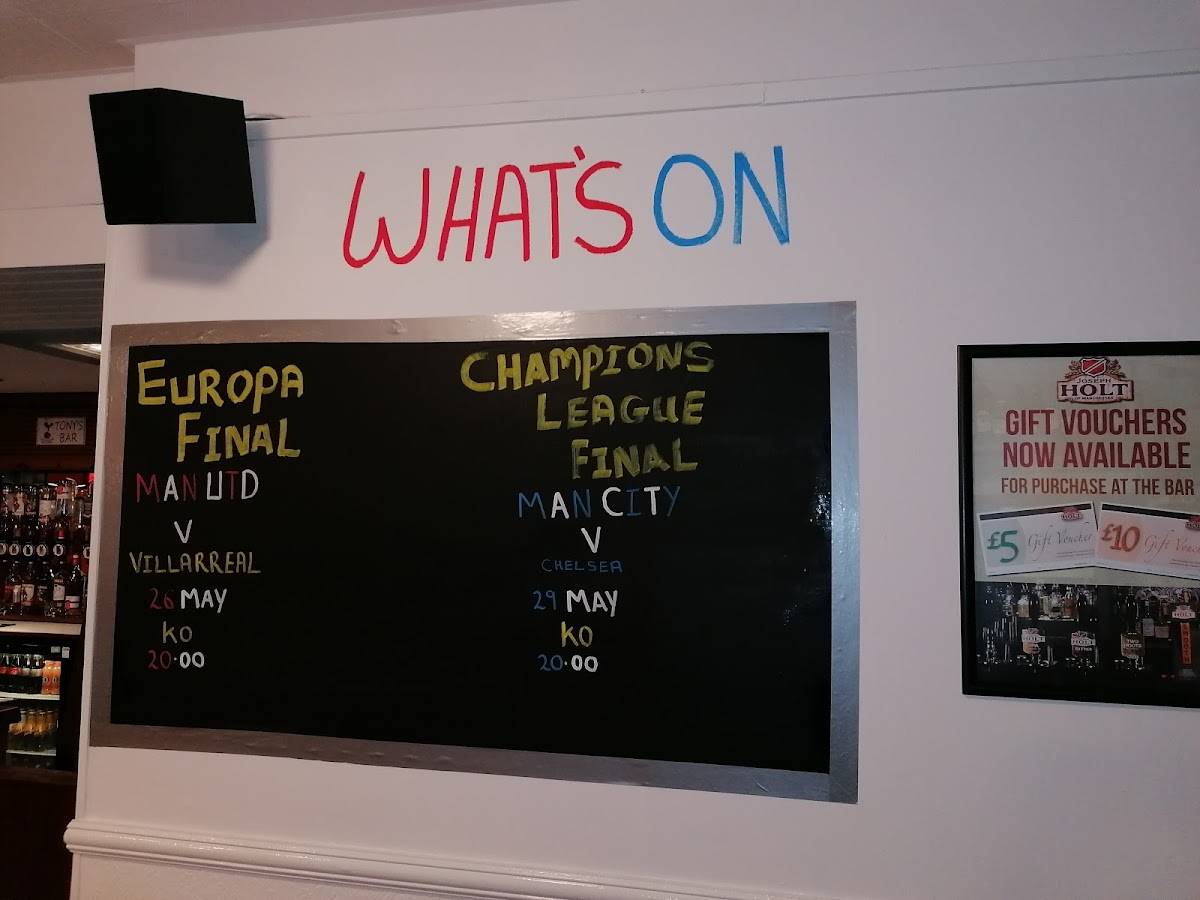 WHAT'S ON
EUROPA
FINAL
MAN UTD
V
VILLARREAL
26 MAY
KO
20.00
CHAMPIONS
LEAGUE
FINAL
MAN CITY
V
CHELSEA
29 MAY
KO
20.00
TONY'S
BAR
JOSEPH
HOLT
GIFT VOUCHERS
NOW AVAILABLE
FOR PURCHASE AT THE BAR
£5 Gift Voucher
£10 Gift Vouche
HOLT
HOLT
TWO
HOOTS
HOLT